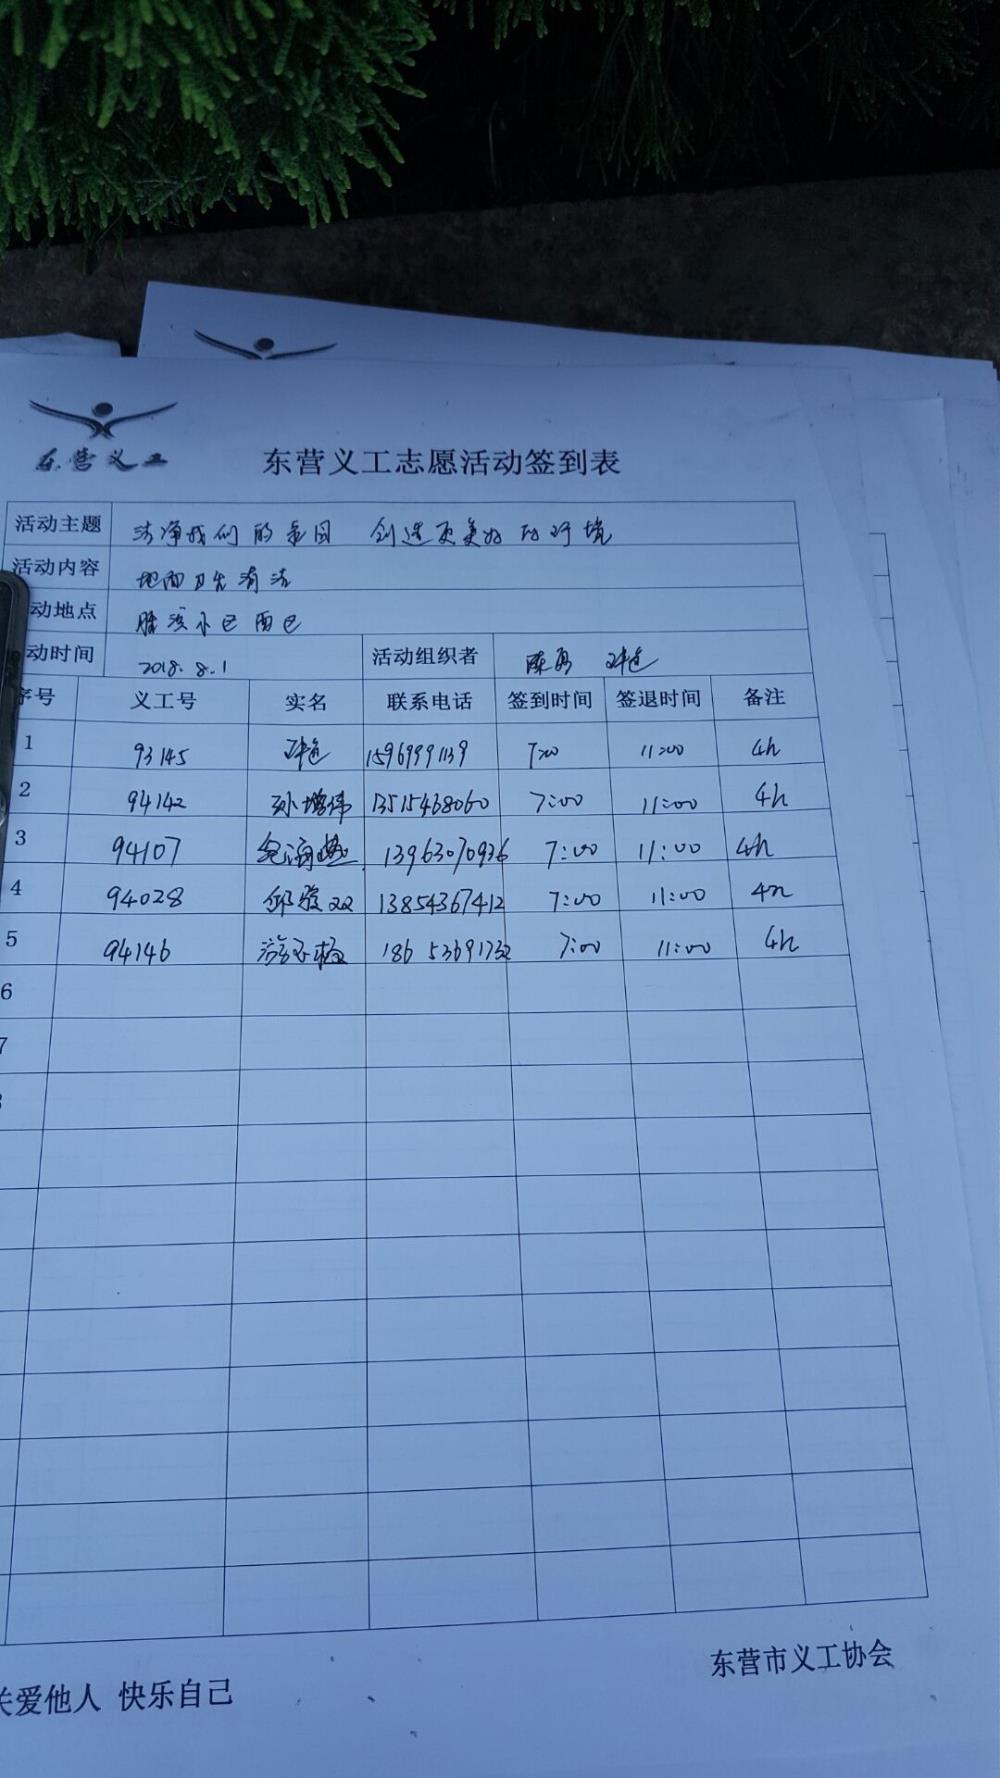 东营义工
东营义工志愿活动签到表
活动主题 洁净我们的家园 创造更美好的环境
活动内容 地面卫生清洁
动地点 胜滨小区西区
动时间 2018.8.1 活动组织者 陈勇
序号 义工号 实名 联系电话 签到时间 签退时间 备注
1 93145 15969991139 7:00 11:00 4h
2 94142 孙增伟 13515468060 7:00 11:00 4h
3 94107 13963070936 7:00 11:00 4h
4 94028 邱 13854367412 7:00 11:00 4h
5 94146 18653691732 7:00 11:00 4h
6
7
东营市义工协会
关爱他人 快乐自己